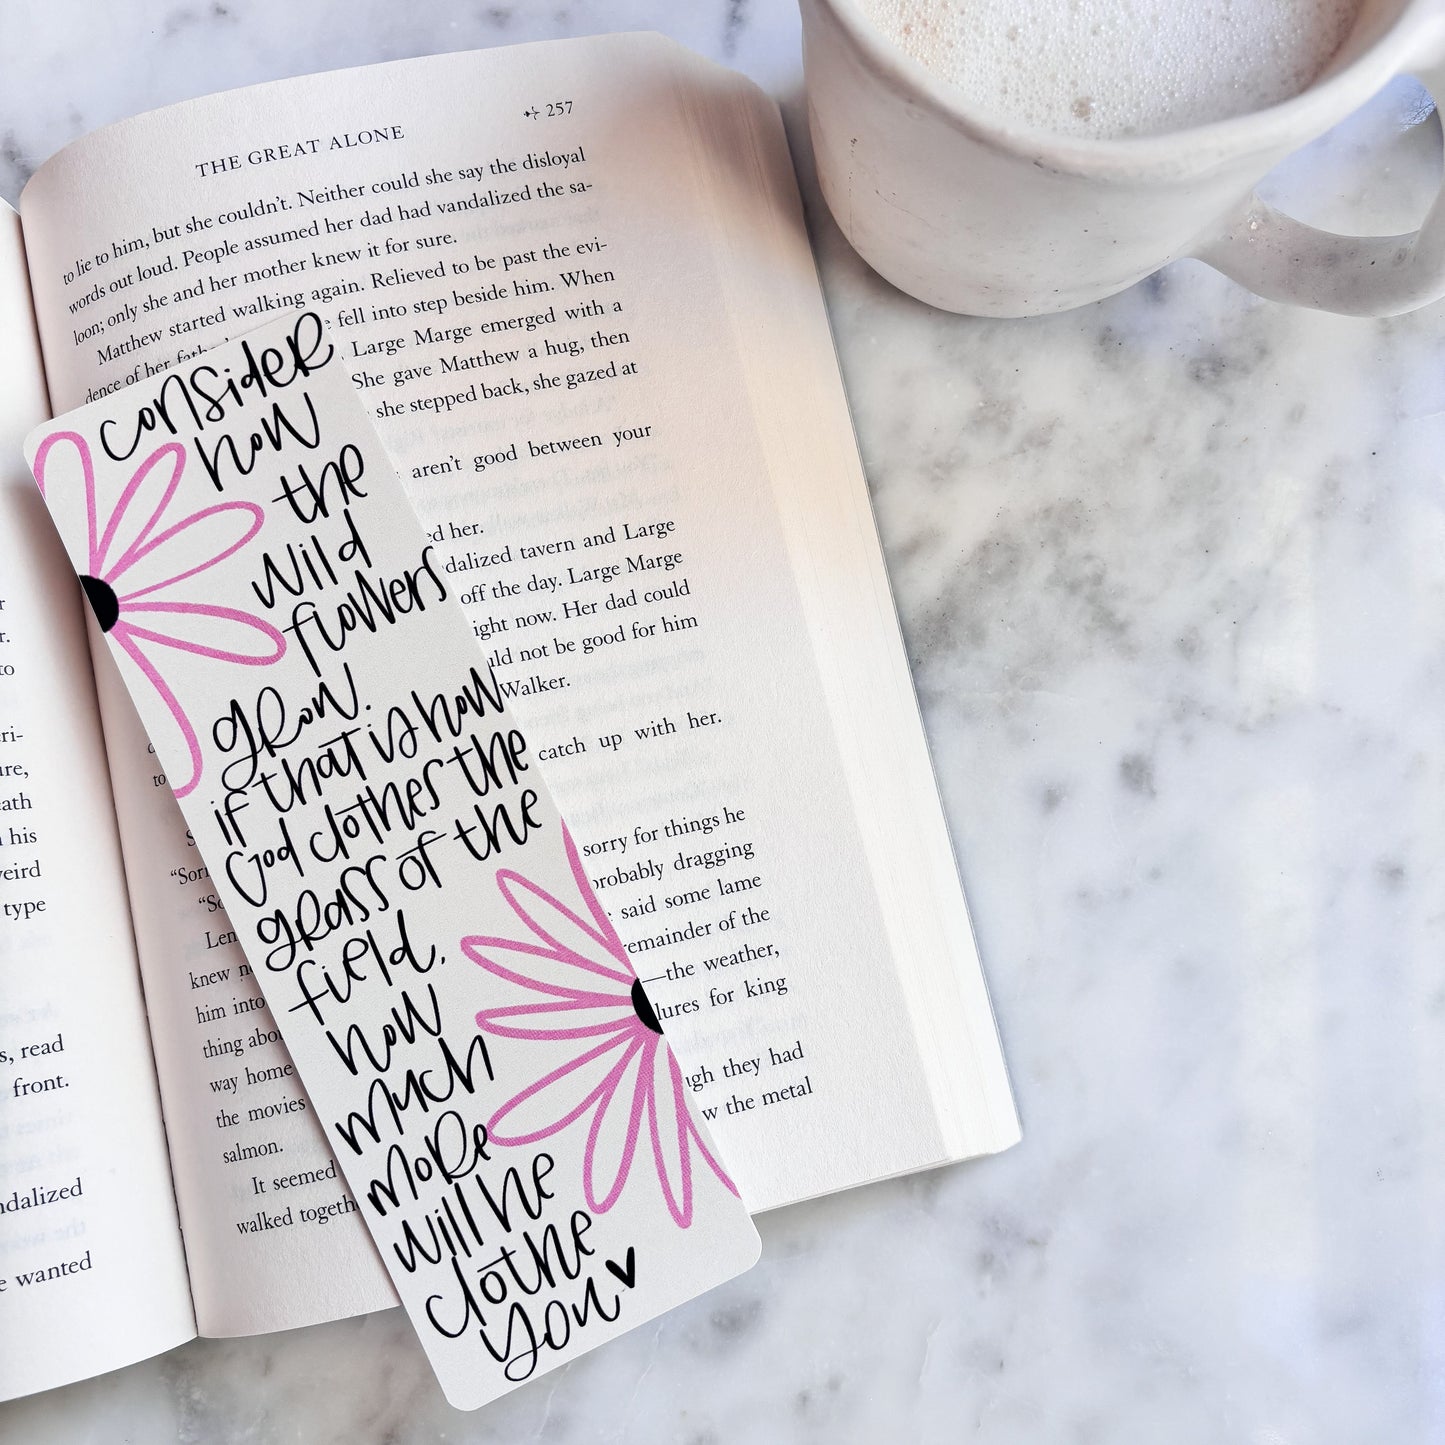 THE GREAT ALONE 257
to lie to him, but she couldn't. Neither could she say the disloyal
words out loud. People assumed her dad had vandalized the sa-
loon; only she and her mother knew it for sure.
Matthew started walking again. Relieved to be past the evi-
dence of her fath
fell into step beside him. When
Large Marge emerged with a
She gave Matthew a hug, then
she stepped back, she gazed at
aren't good between your
ed her.
dalized tavern and Large
off the day. Large Marge
ight now. Her dad could
uld not be good for him
Walker.
catch up with her.
sorry for things he
probably dragging
said some lame
remainder of the
—the weather,
lures for king
ugh they had
w the metal
to
"Sorr
"So
Len
knew n
him into
thing abou
way home
the movies
salmon.
It seemed
walked togeth
consider
how
the
wild
flowers
grow.
if that is how
God clothes the
grass of the
field,
how
much
more
will he
clothe
you
r
r.
to
ri-
re,
eath
his
eird
type
s, read
front.
ndalized
e wanted